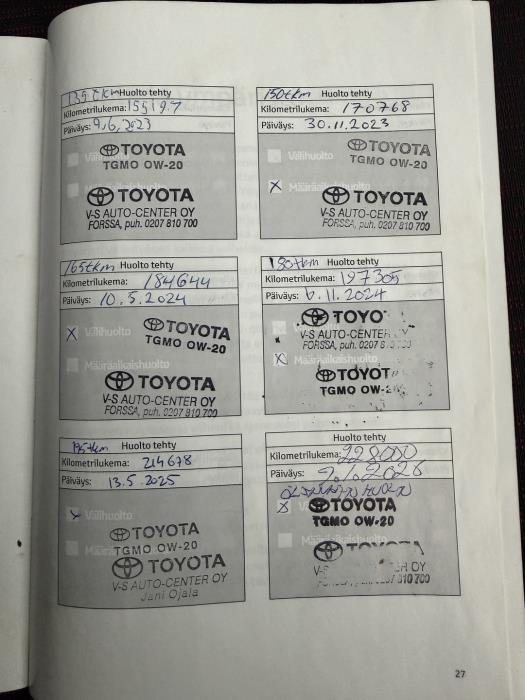 135 tkm Huolto tehty
Kilometrilukema: 155197
Päiväys: 9.6.2023
Välihuolto
TOYOTA
TGMO OW-20
TOYOTA
V-S AUTO-CENTER OY
FORSSA, puh. 0207 810 700
150tkm Huolto tehty
Kilometrilukema: 170768
Päiväys: 30.11.2023
Välihuolto
TOYOTA
TGMO OW-20
X Määräaikaishuolto
TOYOTA
V-S AUTO-CENTER OY
FORSSA, puh. 0207 810 700
165tkm Huolto tehty
Kilometrilukema: 184644
Päiväys: 10.5.2024
X Välihuolto
TOYOTA
TGMO OW-20
Määräaikaishuolto
TOYOTA
V-S AUTO-CENTER OY
FORSSA, puh. 0207 810 700
180tkm Huolto tehty
Kilometrilukema: 197305
Päiväys: 6.11.2024
TOYO
V-S AUTO-CENTER
FORSSA, puh. 0207 8
X Määräaikaishuolto
TOYOT
TGMO OW-2
195tkm Huolto tehty
Kilometrilukema: 214678
Päiväys: 13.5.2025
X Välihuolto
TOYOTA
TGMO OW-20
TOYOTA
V-S AUTO-CENTER OY
Jani Ojala
Huolto tehty
Kilometrilukema: 228000
Päiväys: 9.1.2026
X
TOYOTA
TGMO OW-20
Määräaikaishuolto
TOYOTA
OY
07 810 700
27